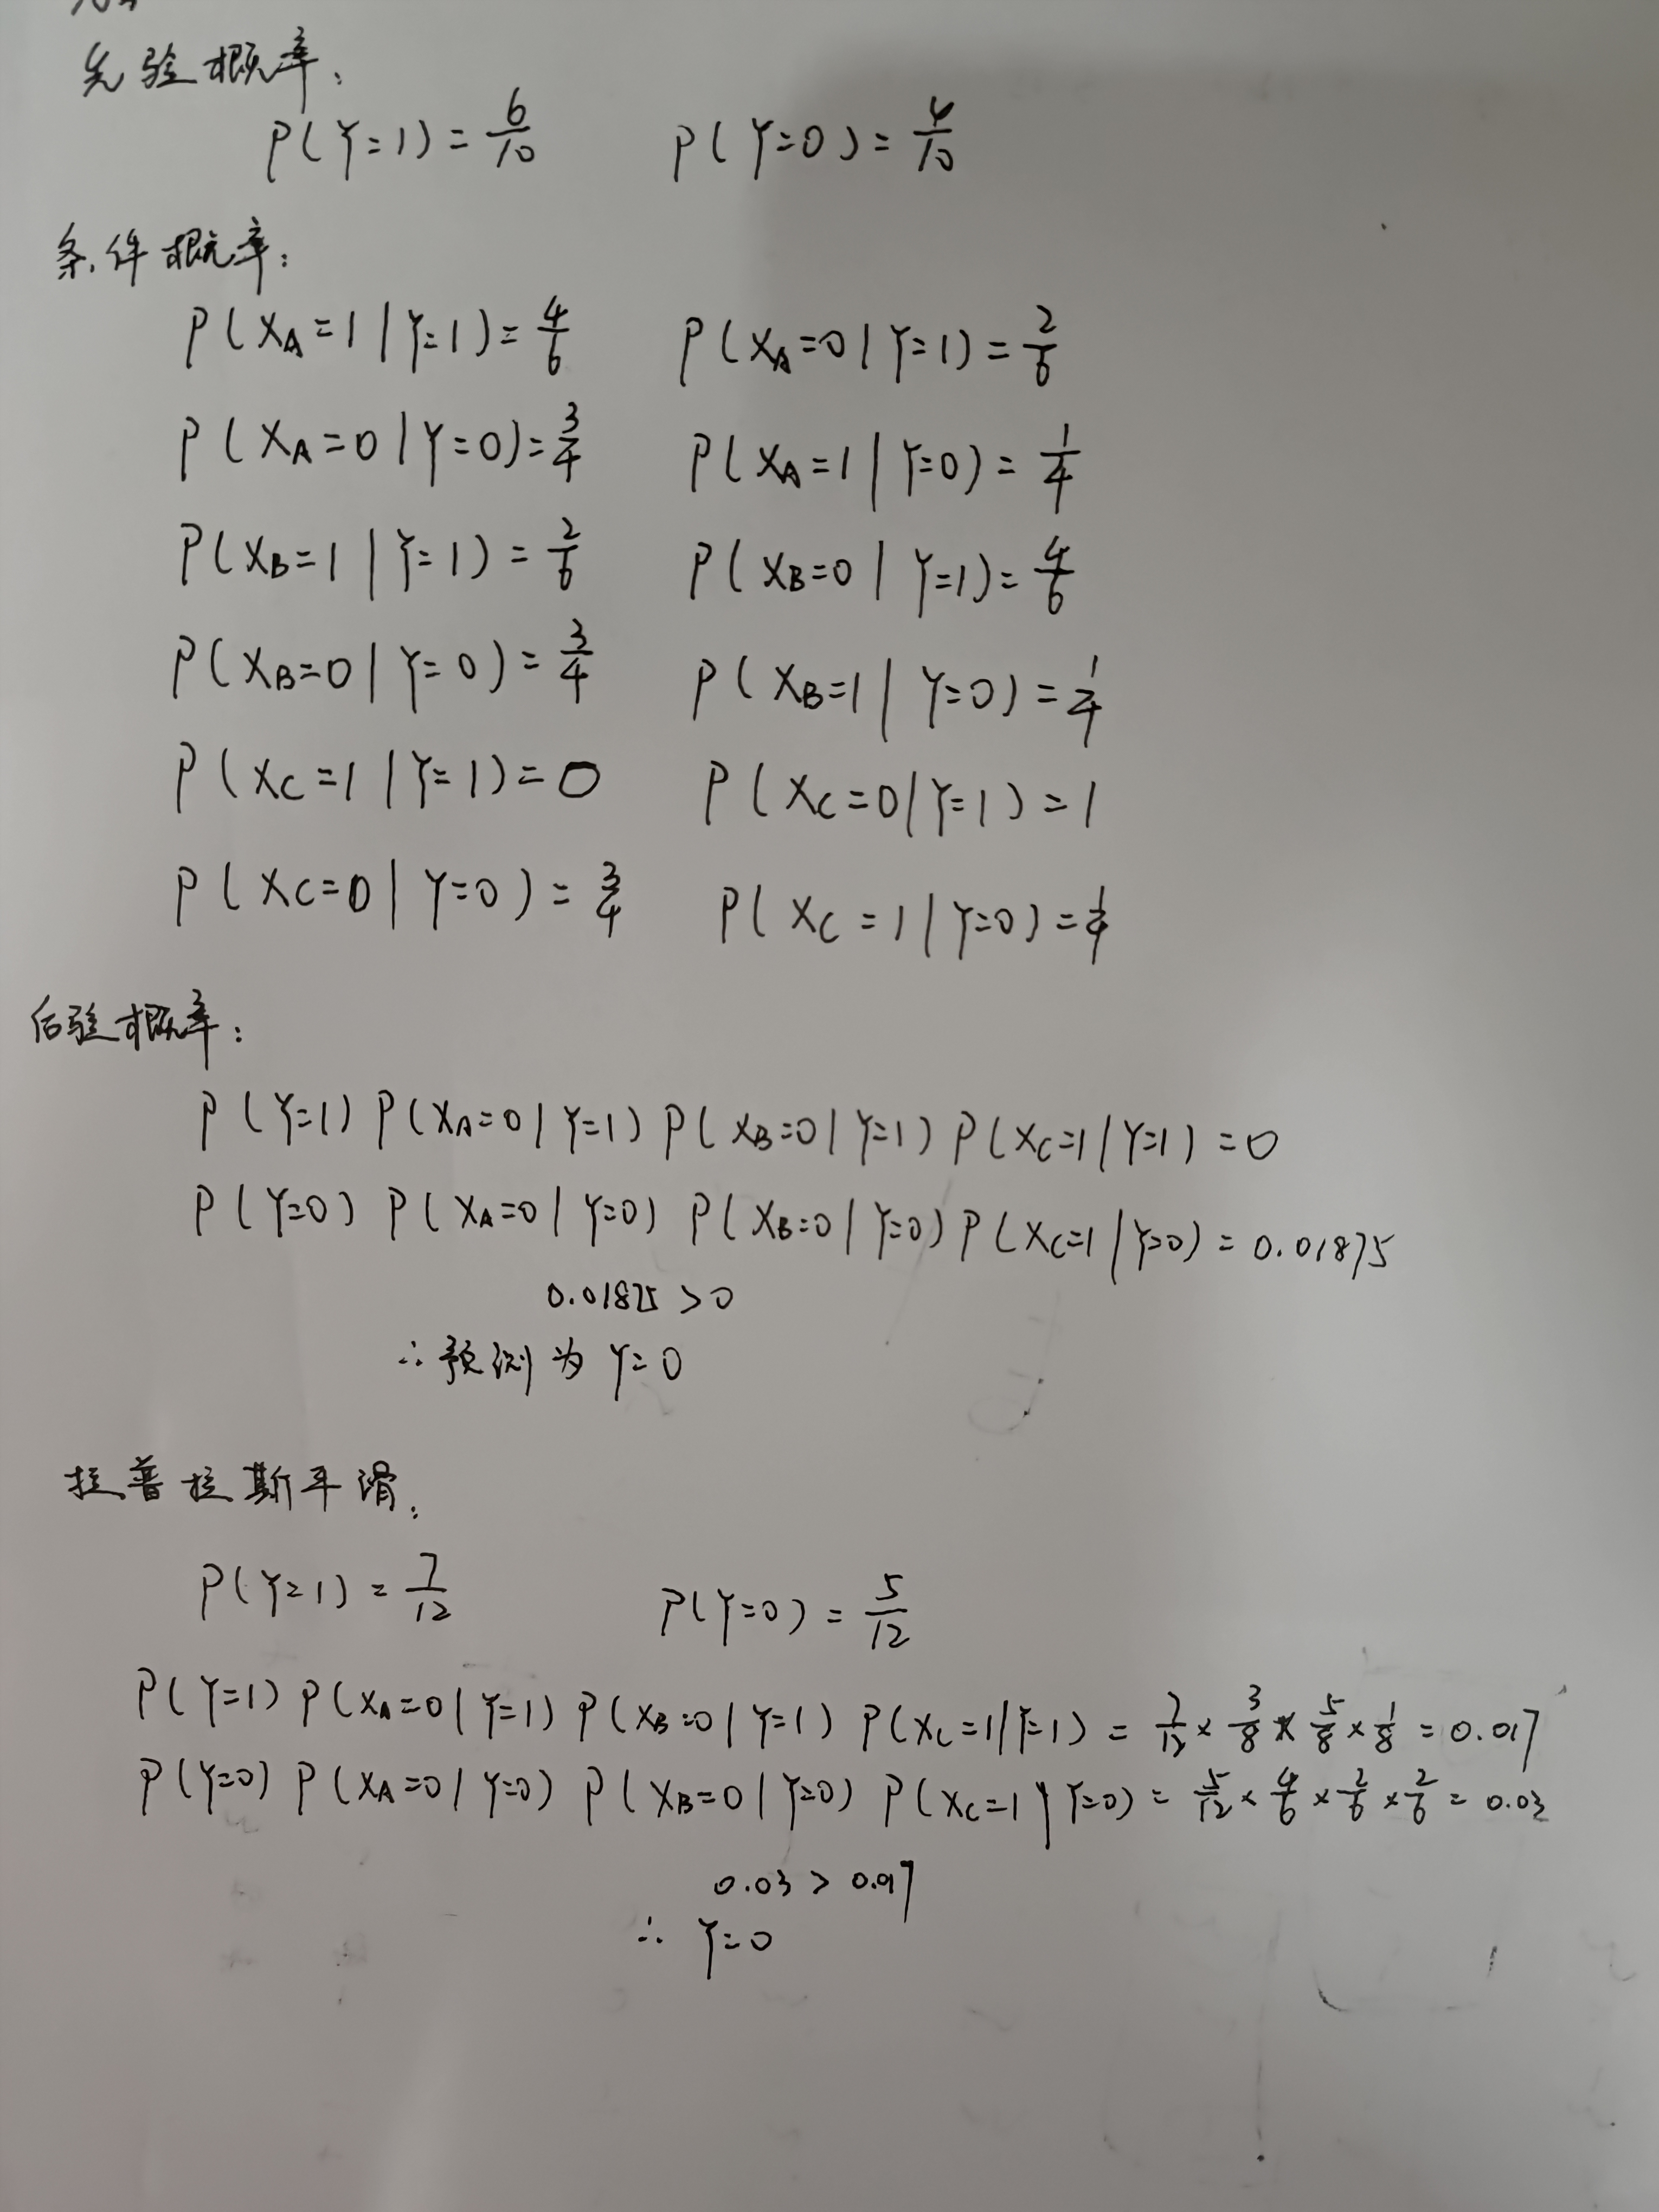 先验概率:
P(Y=1)=6/10 P(Y=0)=4/10
条件概率:
P(XA=1|Y=1)=4/6 P(XA=0|Y=1)=2/6
P(XA=0|Y=0)=3/4 P(XA=1|Y=0)=1/4
P(XB=1|Y=1)=2/6 P(XB=0|Y=1)=4/6
P(XB=0|Y=0)=3/4 P(XB=1|Y=0)=1/4
P(XC=1|Y=1)=0 P(XC=0|Y=1)=1
P(XC=0|Y=0)=3/4 P(XC=1|Y=0)=1/4
后验概率:
P(Y=1)P(XA=0|Y=1)P(XB=0|Y=1)P(XC=1|Y=1)=0
P(Y=0)P(XA=0|Y=0)P(XB=0|Y=0)P(XC=1|Y=0)=0.01875
0.01875>0
∴预测为Y=0
拉普拉斯平滑:
P(Y=1)=7/12 P(Y=0)=5/12
P(Y=1)P(XA=0|Y=1)P(XB=0|Y=1)P(XC=1|Y=1)=7/12×3/8×5/8×1/8=0.017
P(Y=0)P(XA=0|Y=0)P(XB=0|Y=0)P(XC=1|Y=0)=5/12×4/6×2/6×2/6=0.03
0.03>0.017
∴Y=0